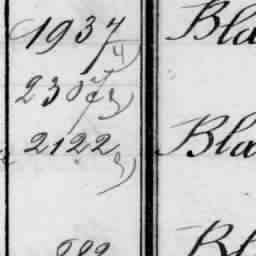 1937 Bla
4)
2307
3)
2122 Bla
3)
Bl